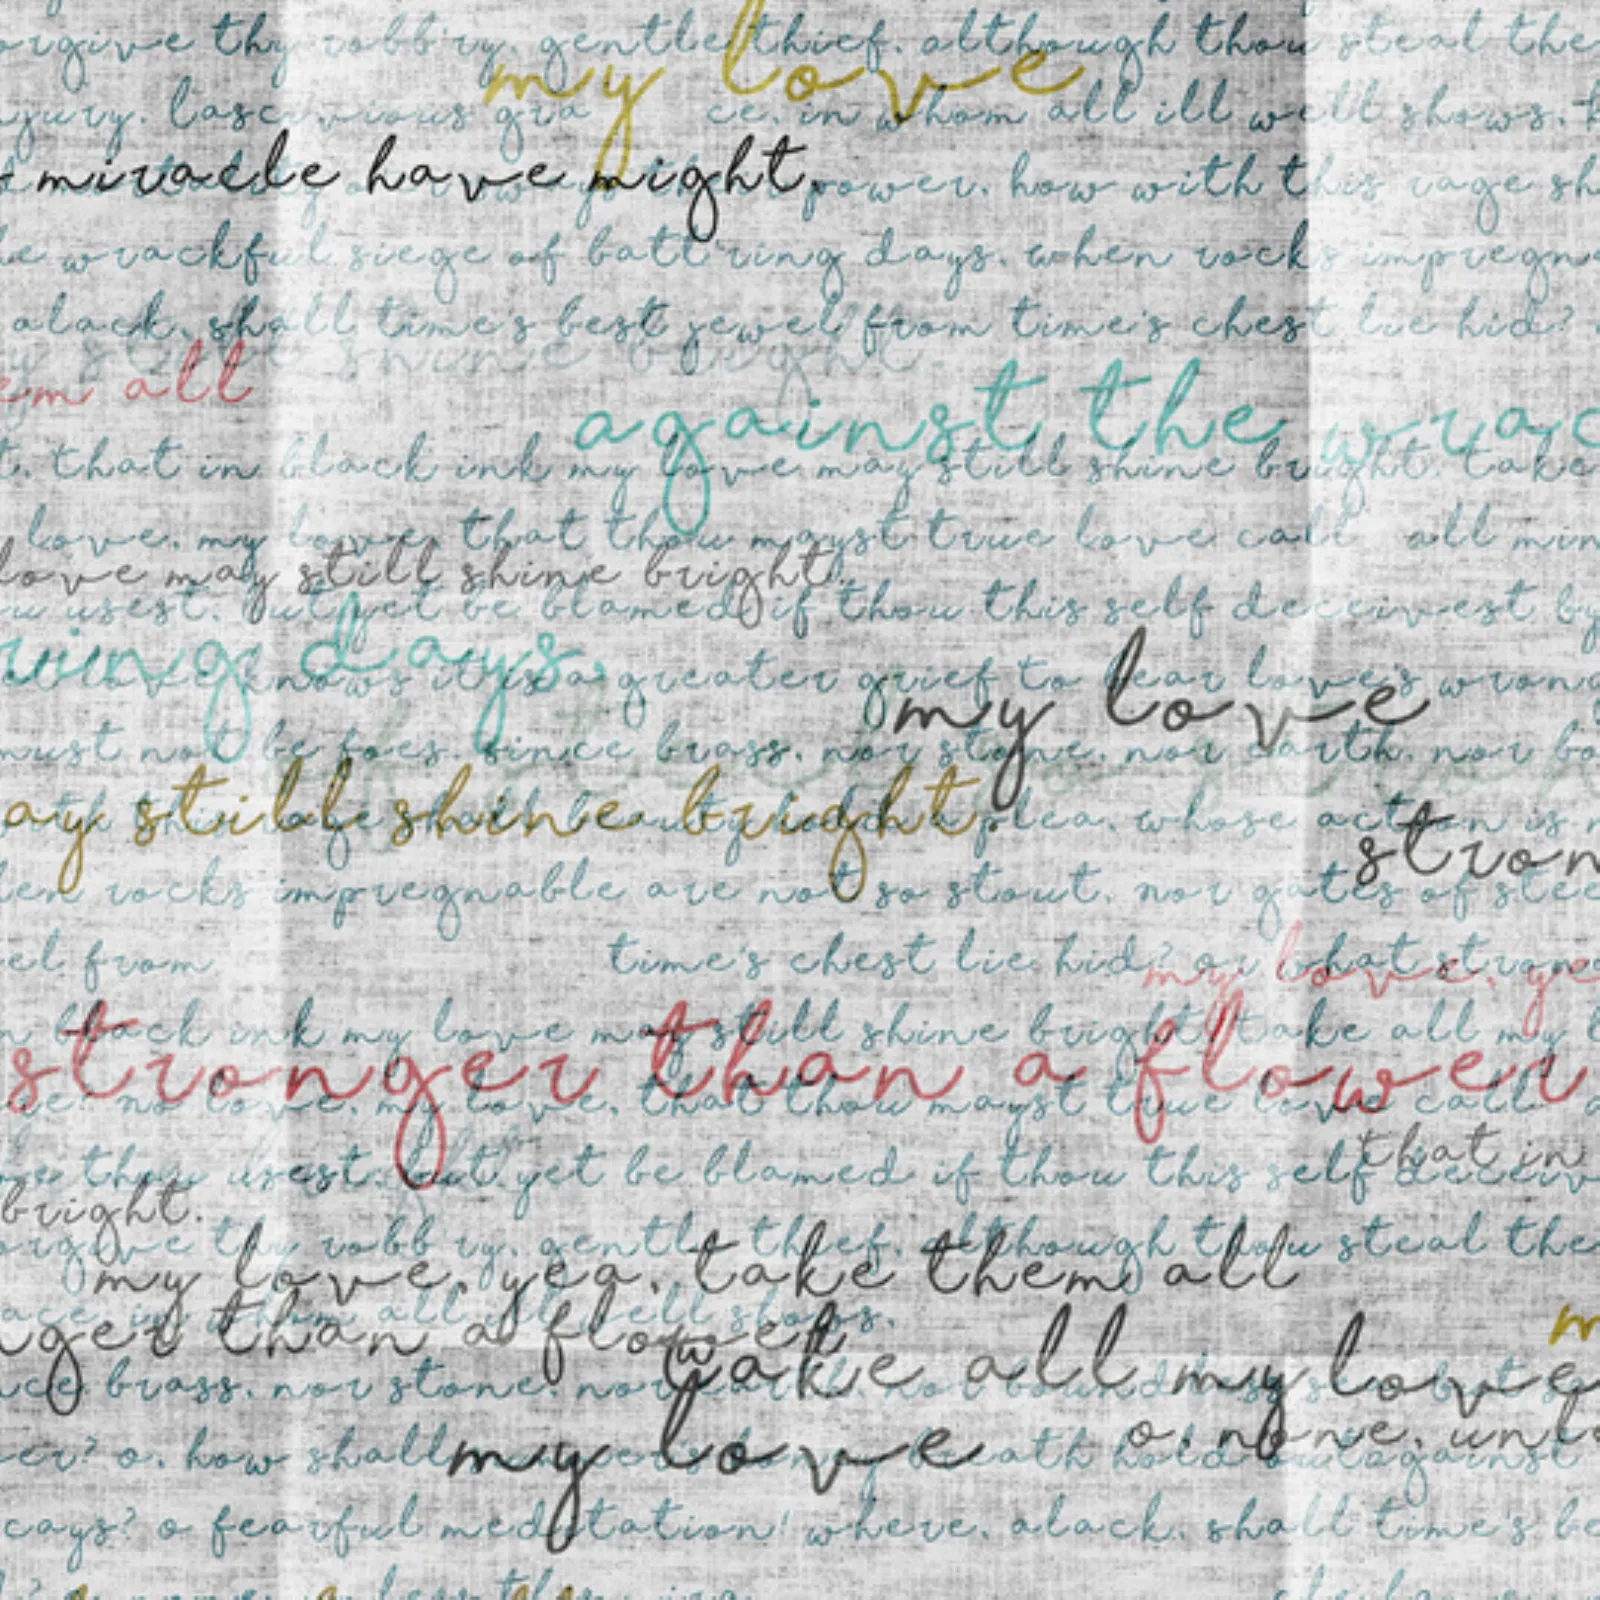 thy robb'ry, gentle thief, although thou steal the
my love
injury. lascivious gra ce, in whom all ill well shows,
miracle have might,
power. how with this rage
wrackful siege of batt'ring days, when rocks
alack, shall time's best jewel from time's chest lie hid?
still shine bright
all
against the
that in black ink my love may still shine bright. take
love, my love, that thou mayst true love call all
love may still shine bright.
usest. but yet be blamed if thou this self deceivest by
days,
knows it is a greater grief to bear love's
my love
must not be foes. since brass, nor stone, nor earth, nor
still shine bright.
plea, whose action is
rocks impregnable are not so stout, nor gates of
from time's chest lie hid? or what
my love, yea
black ink my love may still shine bright. take all my
stronger than a flower
no love, my love, that thou mayst true love call
that in
thou usest. but yet be blamed if thou this self
bright.
thy robb'ry, gentle thief, although thou steal the
my love, yea, take them all
in whom all ill well shows,
than a flower
take all my love
brass, nor stone, nor
o, none,
my love
o, how shall breath hold out against
o fearful meditation! where, alack, shall time's